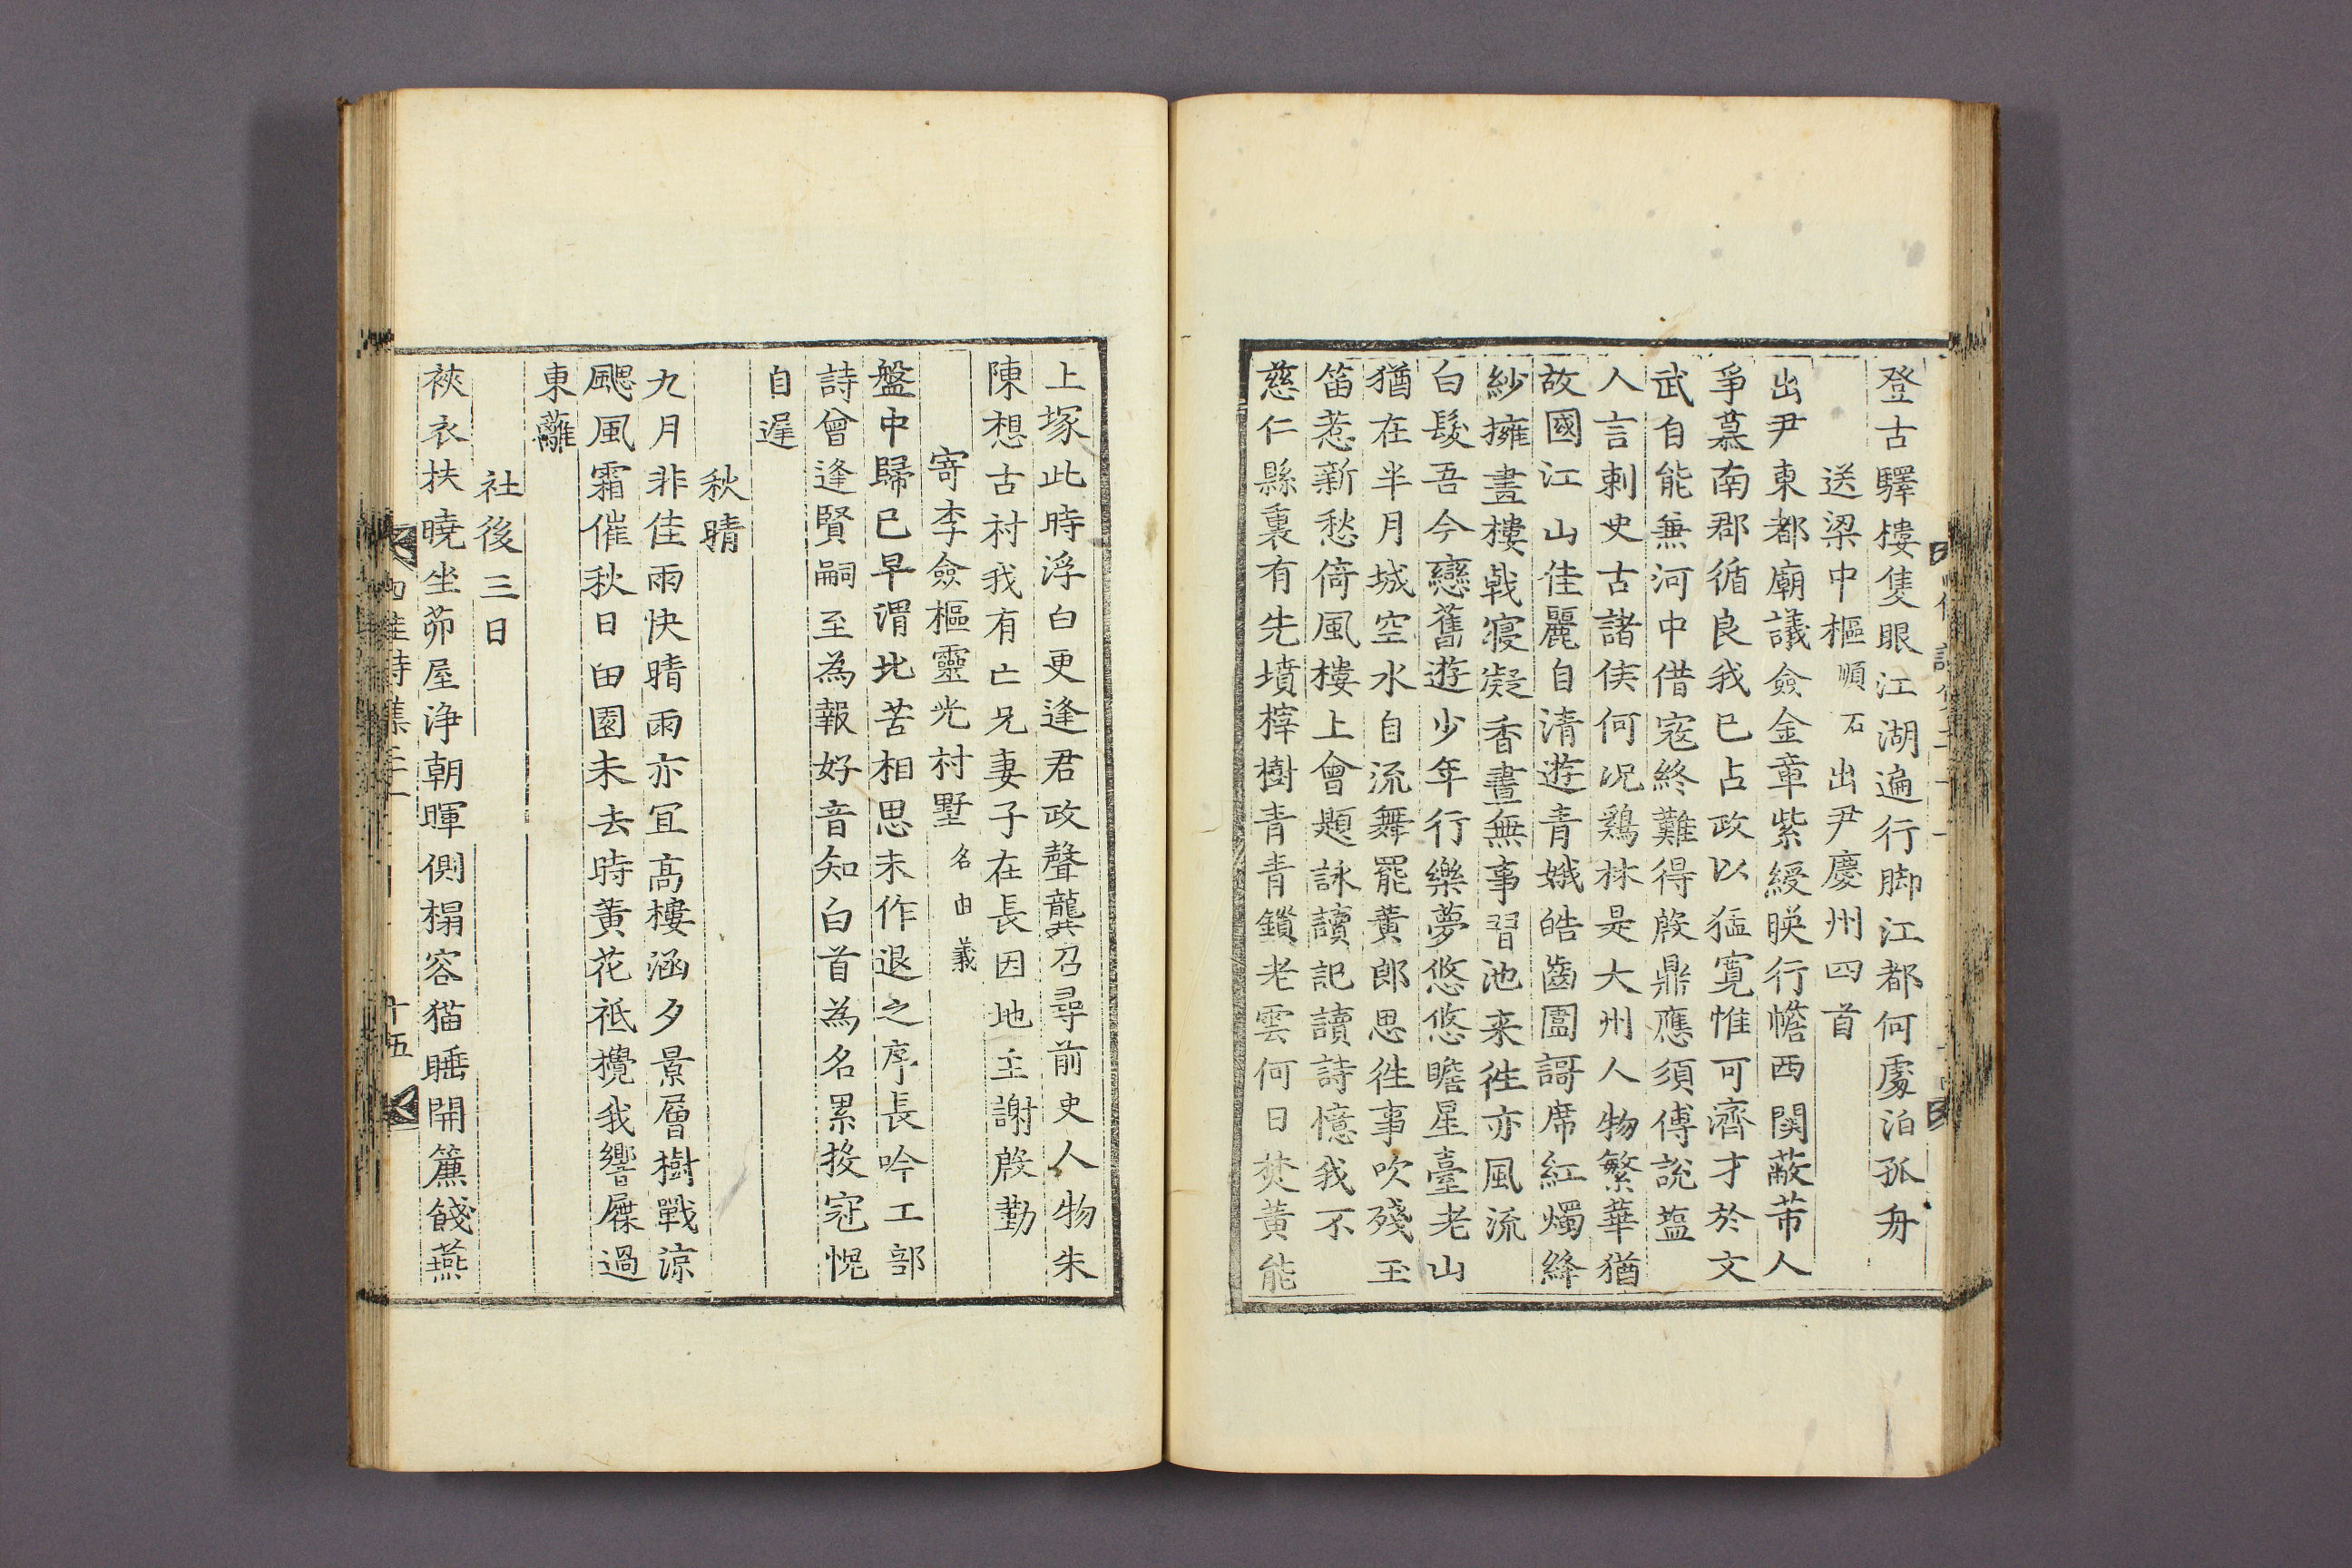 登古驛樓隻眼江湖遍行脚江都何處泊孤舟
送梁中樞順石出尹慶州四首
出尹東都廟議僉金章紫綬映行幨西関蔽芾人
爭慕南郡循良我已占政以猛寬惟可濟才於文
武自能兼河中借寇終難得殷鼎應須傅說塩
人言刺史古諸侯何况鷄林是大州人物繁華猶
故國江山佳麗自清遊青娥皓齒圍謌席紅燭絳
紗擁畫樓戟寢凝香晝無事習池来徃亦風流
白髮吾今戀舊遊少年行樂夢悠悠瞻星臺老山
猶在半月城空水自流舞罷黄郎思徃事吹殘玉
笛惹新愁倚風樓上會題詠讀記讀詩憶我不
慈仁縣裏有先墳梓樹青青鎖老雲何日焚黄能
上塚此時浮白更逢君政聲龔召尋前史人物朱
陳想古村我有亡兄妻子在長因地主謝殷勤
寄李僉樞靈光村墅名由義
盤中歸已早謂此苦相思未作退之序長吟工部
詩會逢賢嗣至為報好音知白首為名累投冠愧
自遅
秋晴
九月非佳雨快晴雨亦冝高樓涵夕景層樹戰涼
颸風霜催秋日田園未去時黄花祗攪我響屧過
東蘺
社後三日
裌衣扶曉坐茆屋淨朝暉側榻容猫睡開簾餞燕
十五